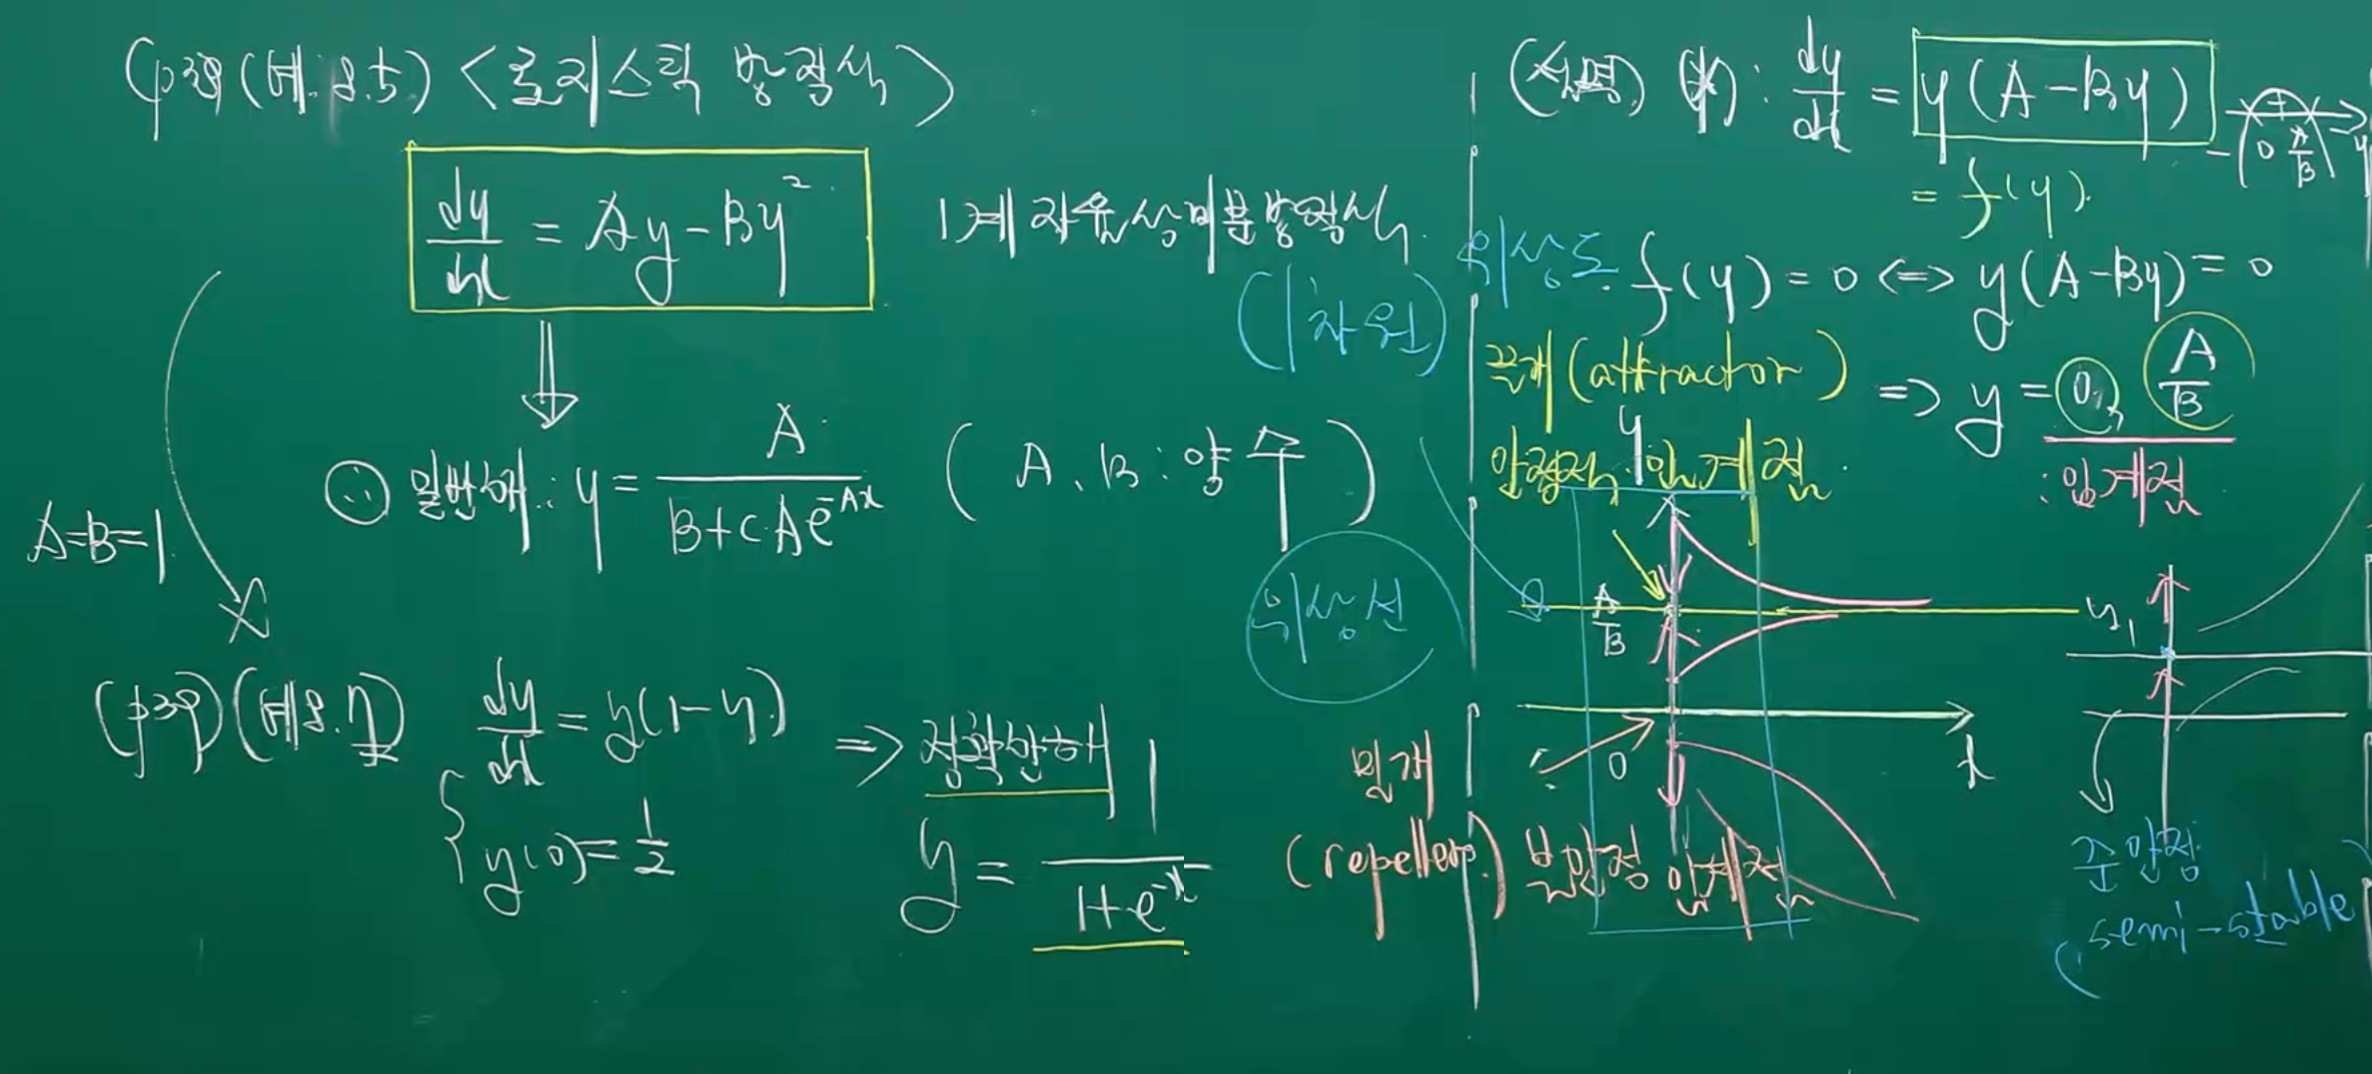 (예. 8.5) <로지스틱 방정식>
dy/dx = Ay - By²
1계 자율 상미분방정식
(1차원)
일반해 : y = A / (B + C·A e^{-Ax}) (A, B : 양수)
A=B=1
위상선
(p39) (예 8.7) dy/dx = y(1-y)
y(0) = 1/2
⇒ 정확한 해
y = 1 / (1+e^{-x})
(설명) (*) : dy/dx = y(A-By)
= f(y).
- ( 0 + A/B ) - y
위상도
f(y) = 0 <=> y(A-By) = 0
끌개 (attractor)
=> y = 0, A/B
: 임계점
안정적 임계점
y
A/B
0
x
밀개
(repeller)
불안정 임계점
y₁
준안정
(semi-stable